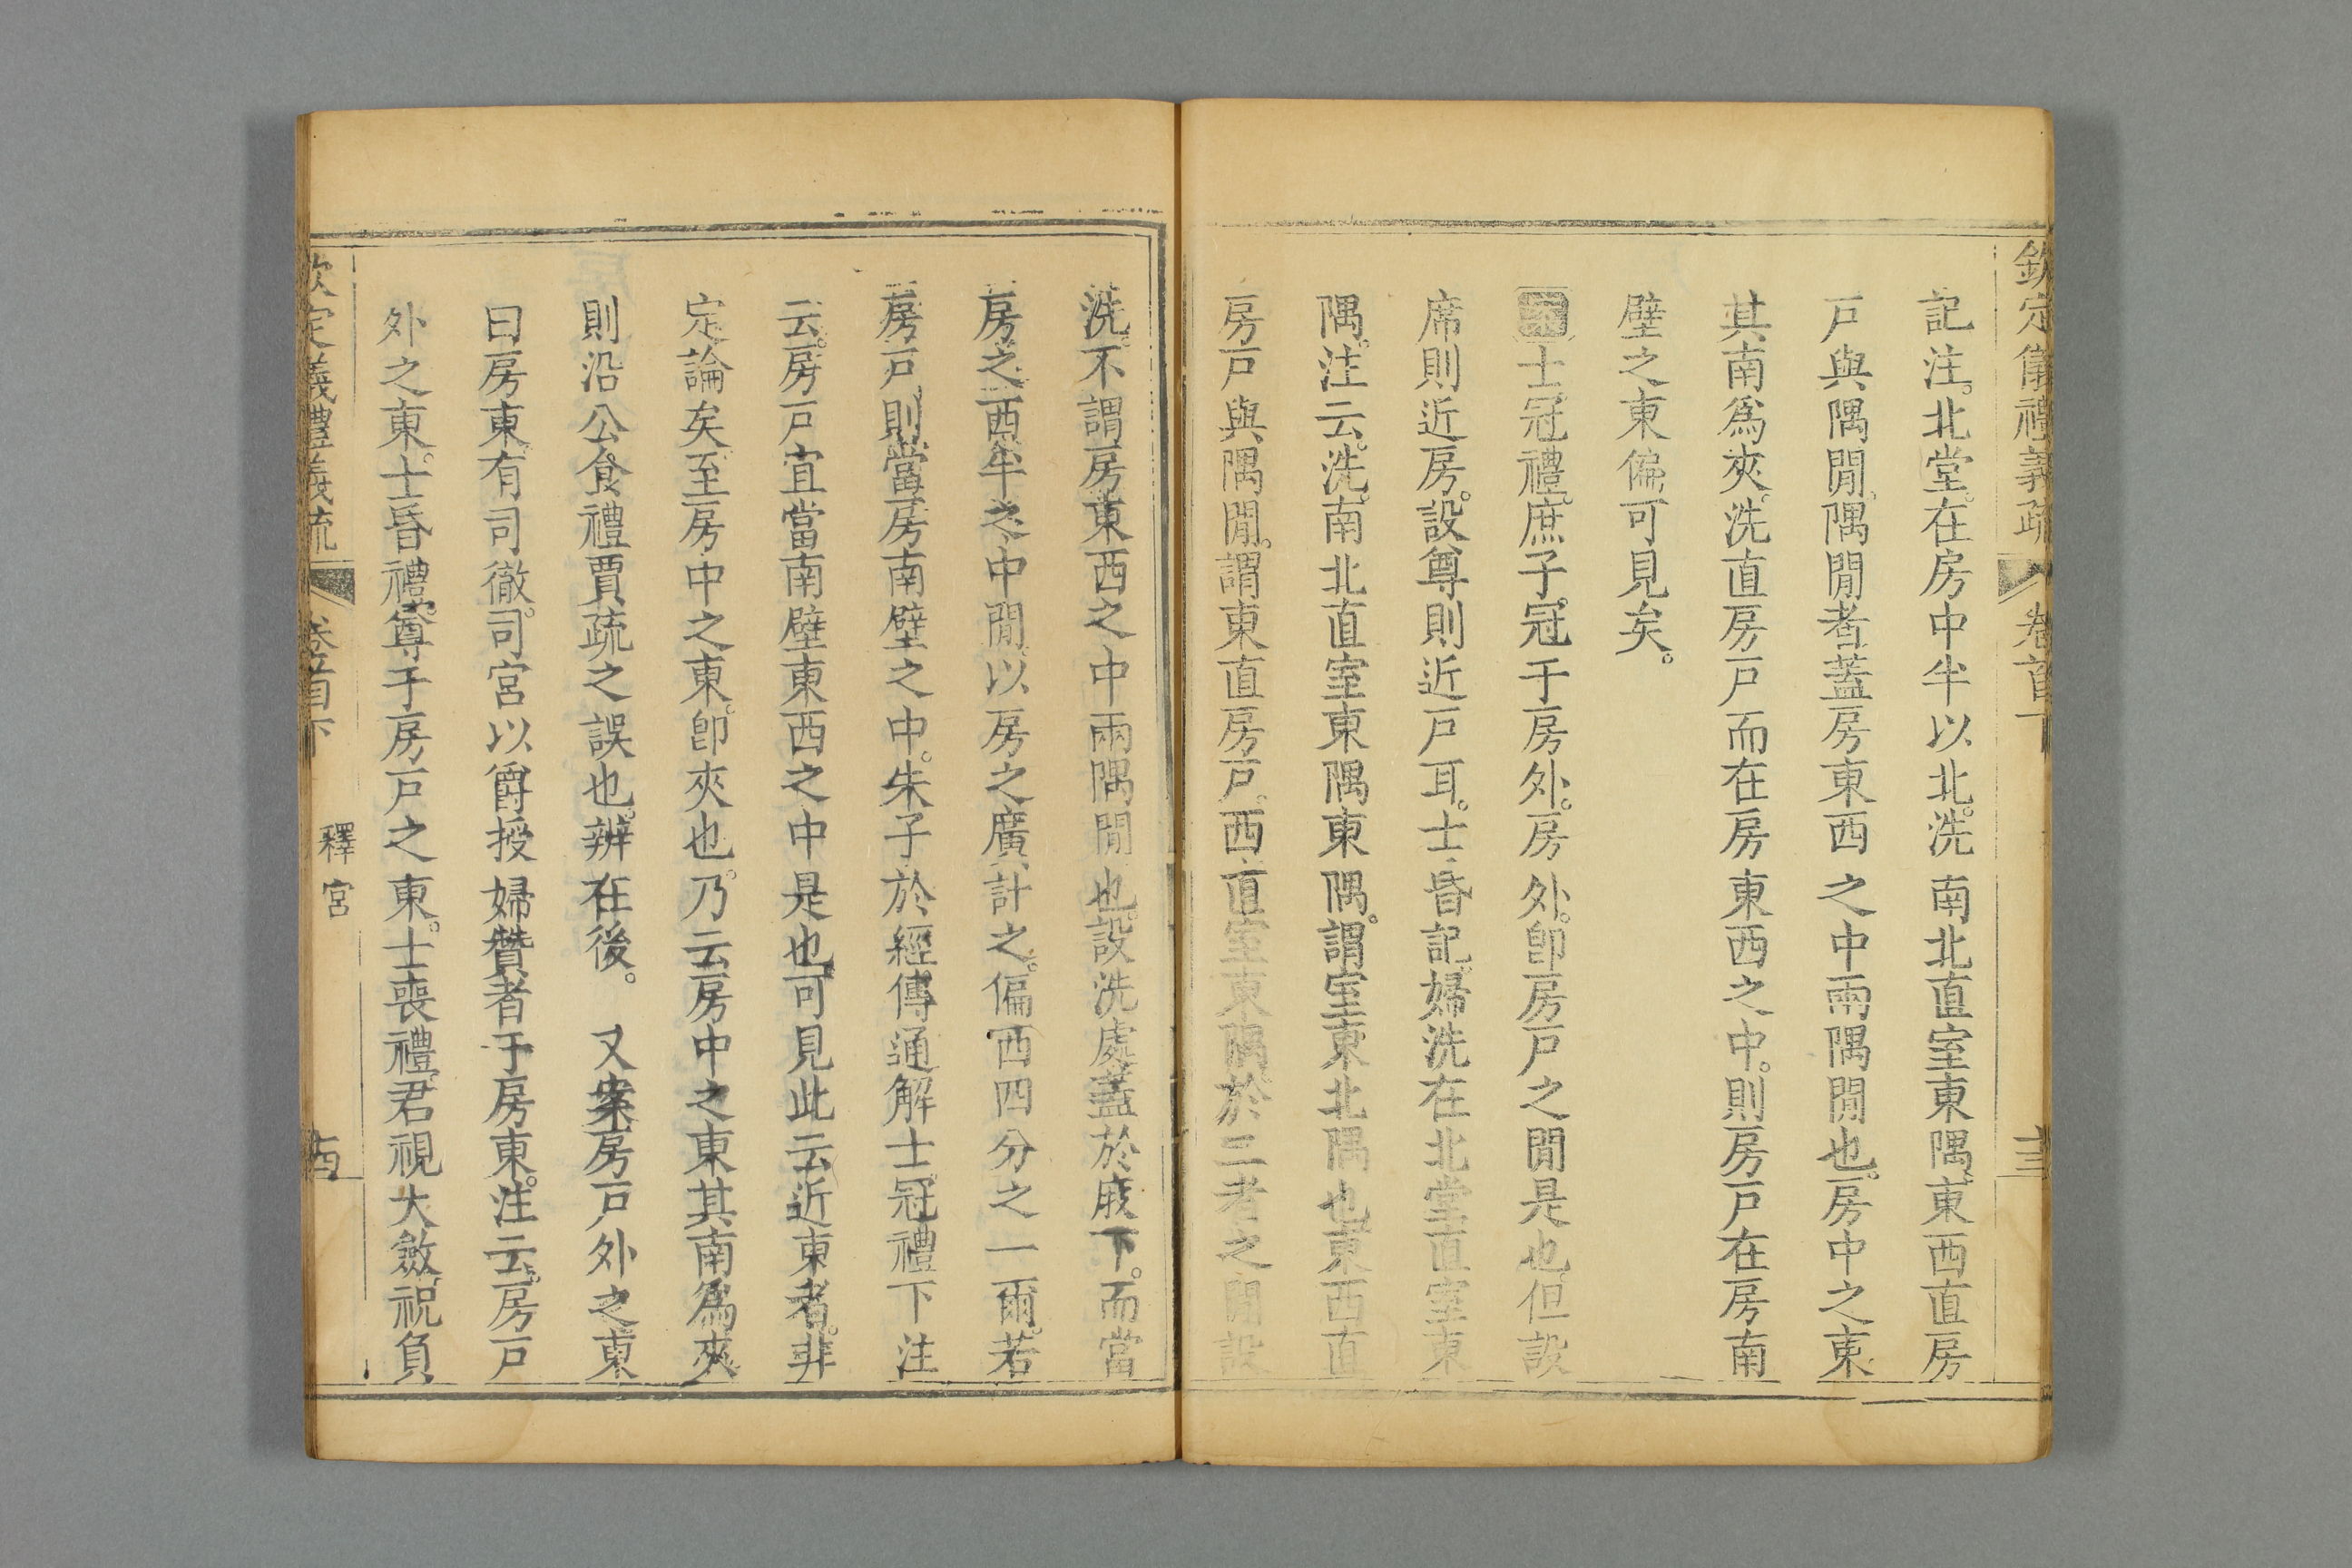 欽定儀禮義疏 卷首下 十三
記注。北堂。在房中半以北。洗南北直室東隅。東西直房
戶與隅閒。隅閒者。蓋房東西之中兩隅閒也。房中之東
其南爲夾。洗直房戶而在房東西之中。則房戶在房南
壁之東偏可見矣。
士冠禮。庶子冠于房外。房外。卽房戶之閒是也。但設
席則近房。設尊則近戶耳。士昏記。婦洗在北堂直室東
隅。注云。洗。南北直室東隅東隅。謂室東北隅也。東西直
房戶與隅閒。謂東直房戶。西直室東隅。於二者之閒設
洗。不謂房東西之中兩隅閒也。設洗處蓋於庪下。而當
房之西半之中閒。以房之廣計之。偏西四分之一爾。若
房戶則當房南壁之中。朱子於經傳通解士冠禮下注
云。房戶宜當南壁東西之中是也。可見此云近東者。非
定論矣。至房中之東。卽夾也。乃云房中之東其南爲夾
則沿公食禮賈疏之誤也。辨在後。 又案房戶外之東
曰房東。有司徹。司宮以爵授婦贊者于房東。注云。房戶
外之東。士昏禮。尊于房戶之東。士喪禮。君視大斂。祝負
欽定義禮義疏 卷首下 釋宮